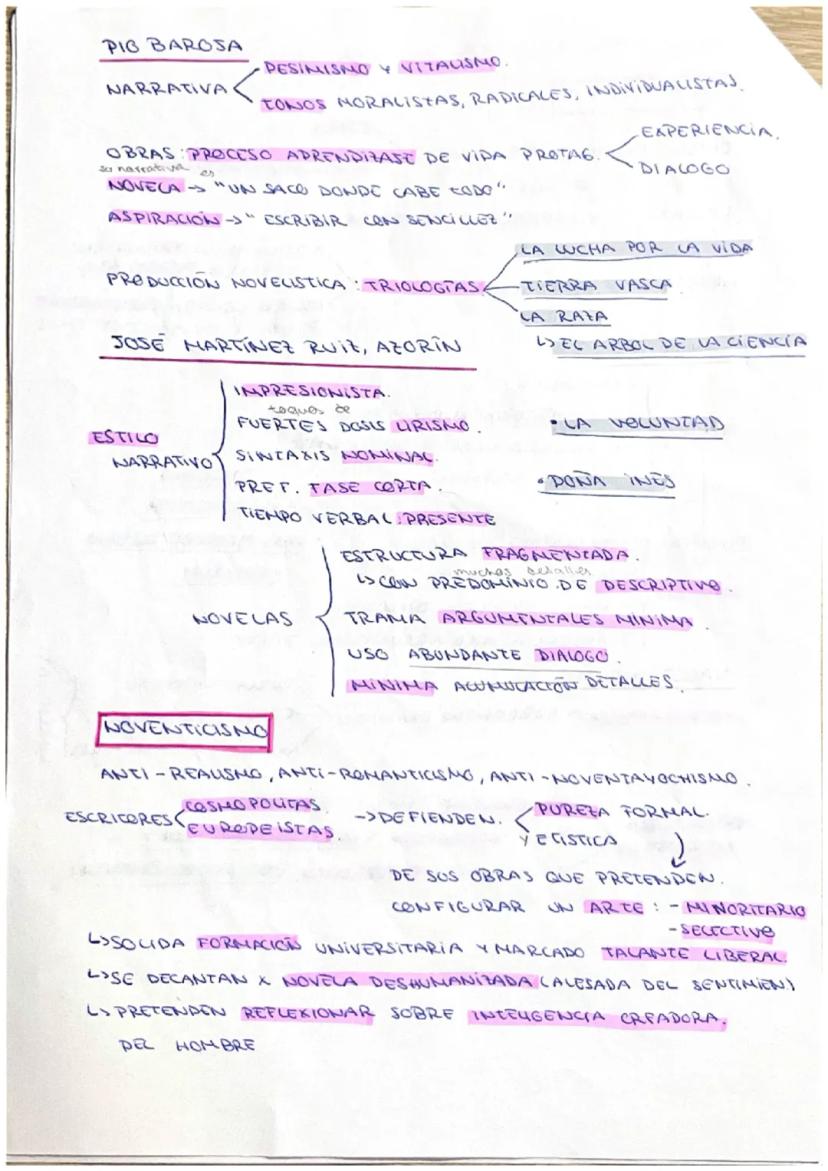 PIO BAROJA
PESIMISMO Y VITALISMO.
NARRATIVA
TONOS MORALISTAS, RADICALES, INDIVIDUALISTAS.
EXPERIENCIA.
OBRAS: PROCESO APRENDIZAJE DE VIDA PROTAG.
DIALOGO
su narrativa es
NOVELA -> "UN SACO DONDE CABE TODO"
ASPIRACIÓN -> "ESCRIBIR CON SENCILLEZ"
LA LUCHA POR LA VIDA
PRODUCCIÓN NOVELISTICA: TRIOLOGÍAS
TIERRA VASCA
LA RAZA
↳ EL ARBOL DE LA CIENCIA
JOSÉ MARTÍNEZ RUIZ, AZORÍN
IMPRESIONISTA.
toques de
FUERTES DOSIS LIRISMO.
• LA VOLUNTAD
ESTILO
NARRATIVO
SINTAXIS NOMINAL
PREF. FASE CORTA
• DOÑA INÉS
TIEMPO VERBAL: PRESENTE
ESTRUCTURA FRAGMENTADA.
muchos detalles
↳ CON PREDOMINIO DE DESCRIPTIVO.
NOVELAS
TRAMA ARGUMENTALES MINIMA
USO ABUNDANTE DIALOGO
MÍNIMA ACUMULACIÓN DETALLES.
NOVENTICISMO
ANTI-REALISMO, ANTI-ROMANTICISMO, ANTI-NOVENTAYOCHISMO.
ESCRITORES
COSMOPOLITAS.
EUROPEISTAS.
-> DEFIENDEN.
PUREZA FORMAL
Y ETISTICA
DE SUS OBRAS QUE PRETENDEN.
CONFIGURAR UN ARTE: - MINORITARIO
- SELECTIVO
↳ SOLIDA FORMACIÓN UNIVERSITARIA Y MARCADO TALANTE LIBERAL.
↳ SE DECANTAN X NOVELA DESHUMANIZADA (ALEJADA DEL SENTIMIEN.)
↳ PRETENDEN REFLEXIONAR SOBRE INTELIGENCIA CREADORA.
DEL HOMBRE